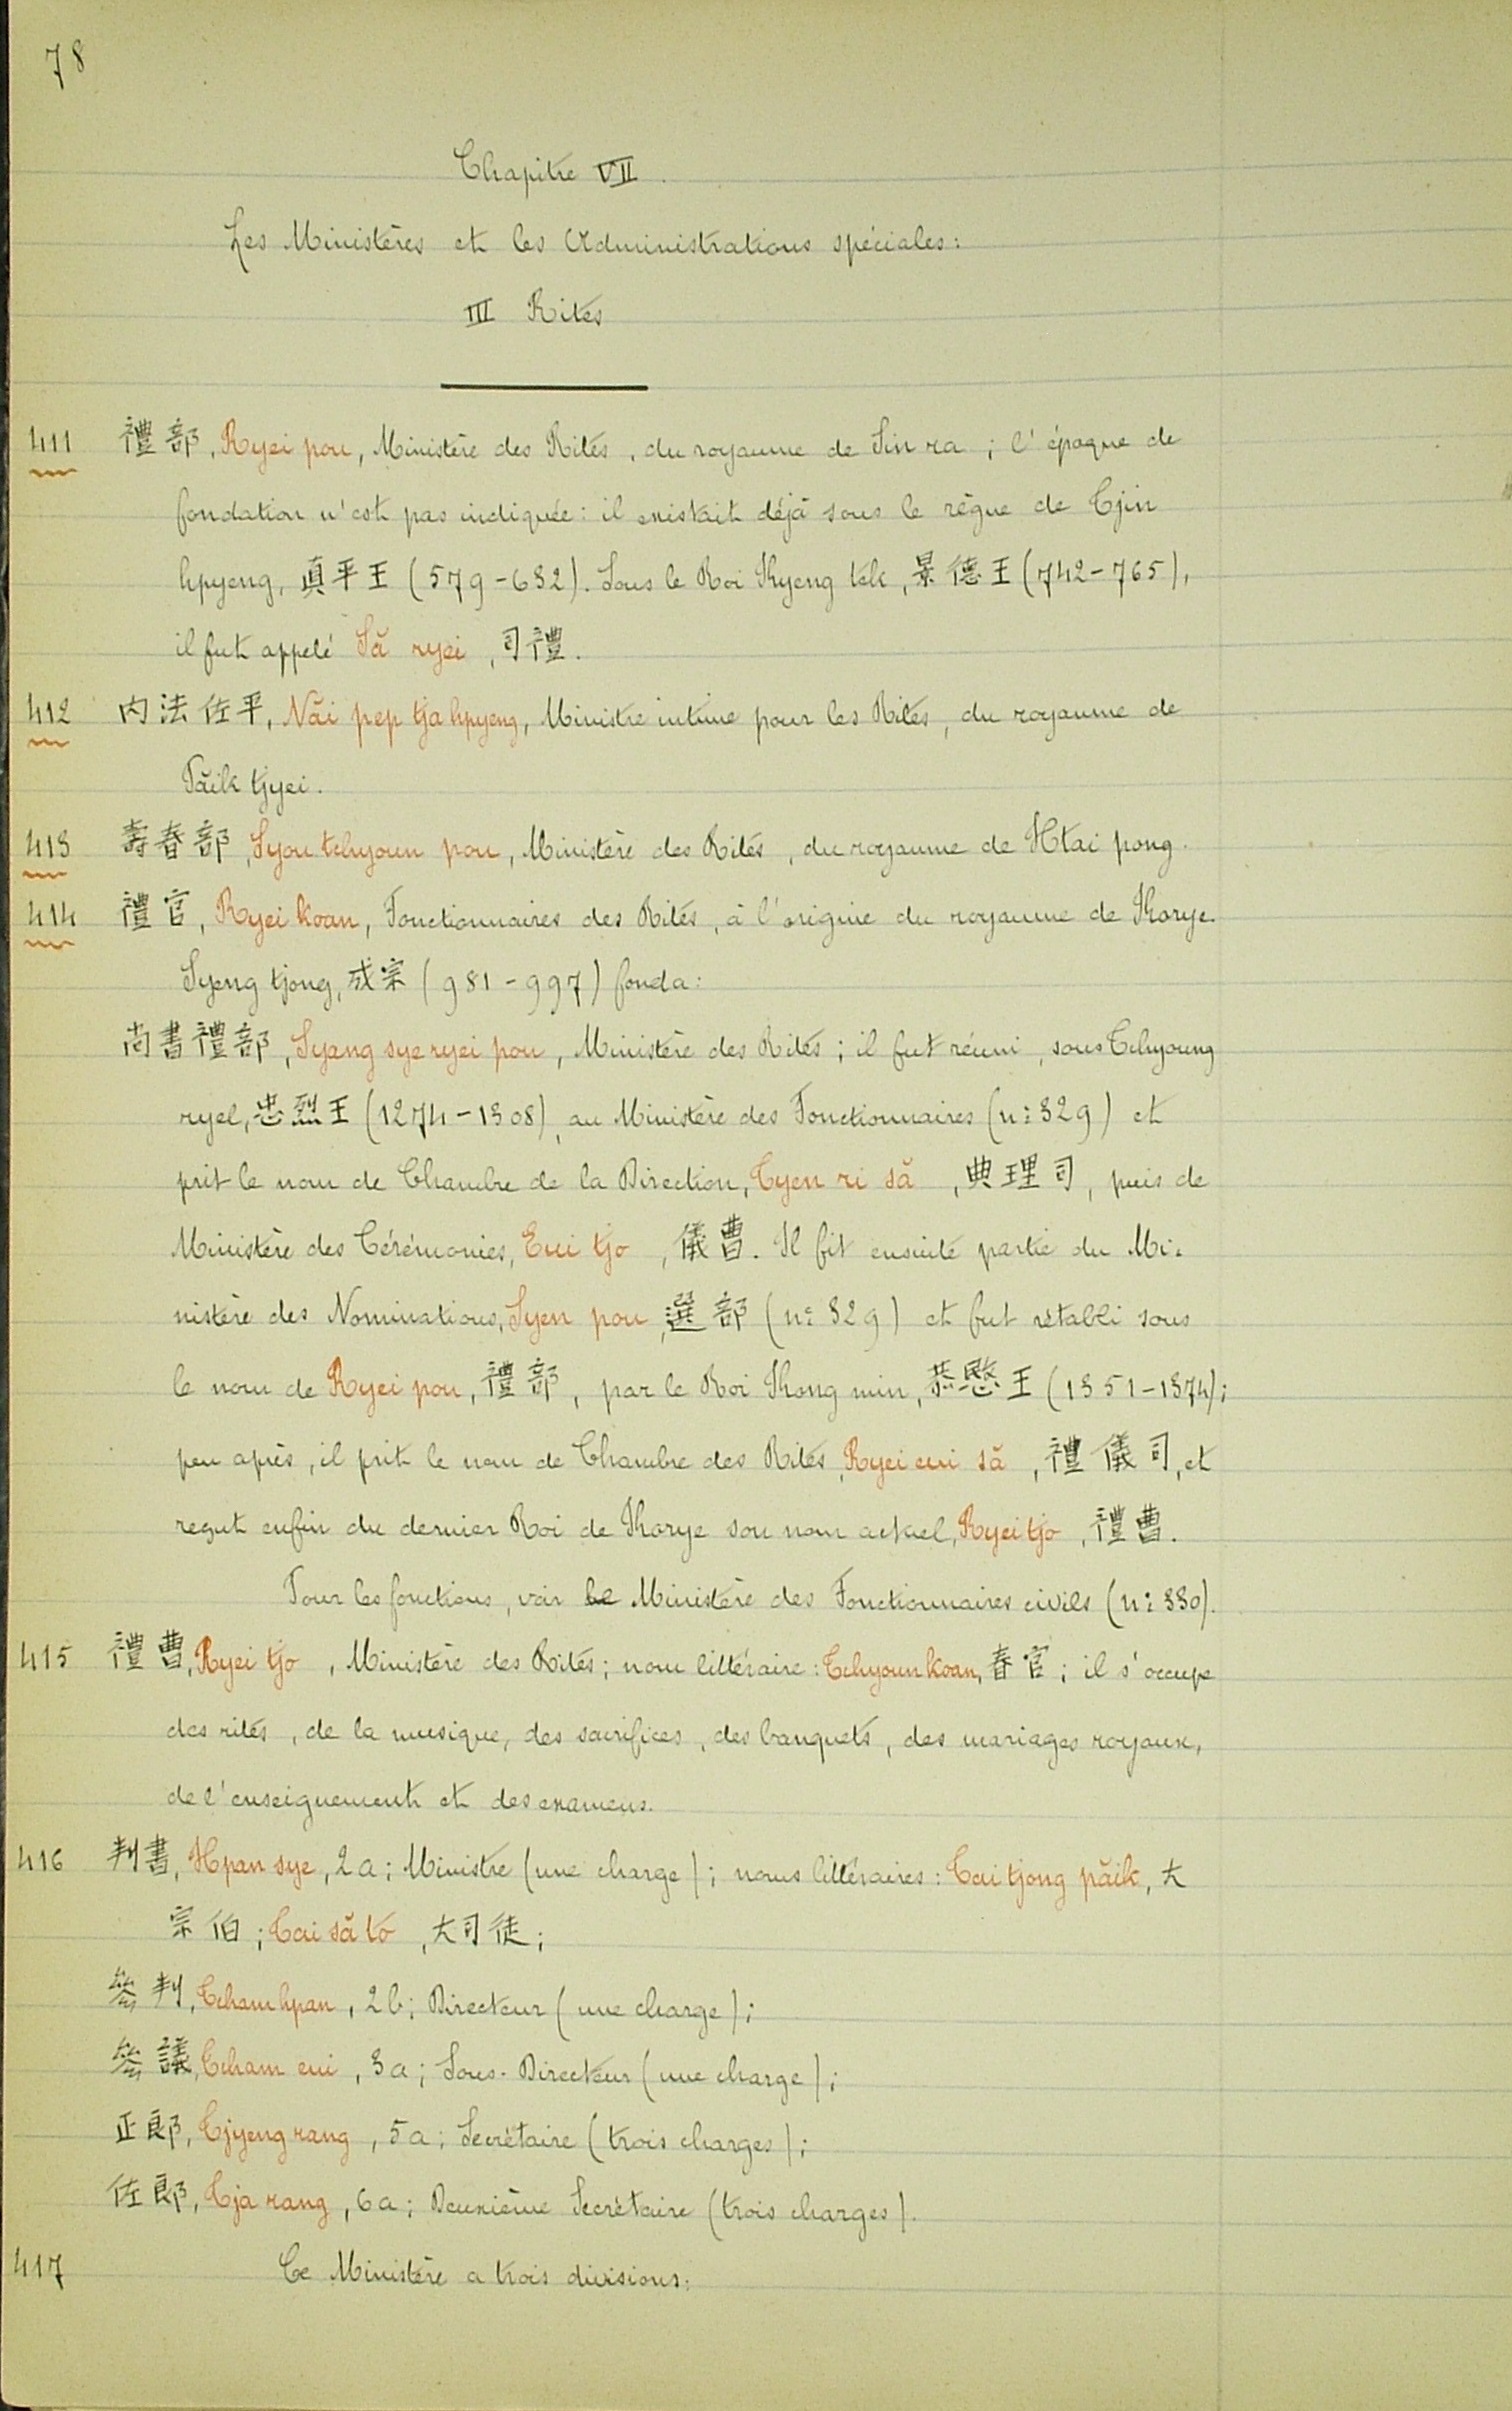 78
Chapitre VII.
Les Ministères et les Administrations spéciales:
III Rites
411 禮部, Ryei pou, Ministère des Rites, du royaume de Sin ra; l'époque de
fondation n'est pas indiquée: il existait déjà sous le règne de Tjin
hpyeng, 眞平王 (579-632). Sous le Roi Kyeng tek, 景德王 (742-765),
il fut appelé Să ryei, 司禮.
412 內法佐平, Năi pep tja hpyeng, Ministre intime pour les Rites, du royaume de
Păik tjyei.
413 壽春部, Syou tchyoun pou, Ministère des Rites, du royaume de Htai pong.
414 禮官, Ryei koan, Fonctionnaires des Rites, à l'origine du royaume de Korye.
Syeng tjong, 成宗 (981-997) fonda:
尚書禮部, Syang sye ryei pou, Ministère des Rites; il fut réuni, sous Tchyoung
ryel, 忠烈王 (1274-1308), au Ministère des Fonctionnaires (n: 329) et
prit le nom de Chambre de la Direction, Tyen ri să, 典理司, puis de
Ministère des Cérémonies, Eui tjo, 儀曹. Il fit ensuite partie du Mi-
nistère des Nominations, Syen pou, 選部 (n: 329) et fut rétabli sous
le nom de Ryei pou, 禮部, par le Roi Kong min, 恭愍王 (1351-1374);
peu après, il prit le nom de Chambre des Rites, Ryei eui să, 禮儀司, et
reçut enfin du dernier Roi de Korye son nom actuel, Ryei tjo, 禮曹.
Pour les fonctions, voir le Ministère des Fonctionnaires civils (n: 330).
415 禮曹, Ryei tjo, Ministère des Rites; nom littéraire: Tchyoun koan, 春官; il s'occupe
des rites, de la musique, des sacrifices, des banquets, des mariages royaux,
de l'enseignement et des examens.
416 判書, Hpan sye, 2a; Ministre (une charge); noms littéraires: Tai tjong păik, 大
宗伯; Tai să to, 大司徒;
參判, Tcham hpan, 2b; Directeur (une charge);
參議, Tcham eui, 3a; Sous-Directeur (une charge);
正郎, Tjyeng rang, 5a; Secrétaire (trois charges);
佐郎, Tja rang, 6a; Deuxième Secrétaire (trois charges).
417 Ce Ministère a trois divisions: